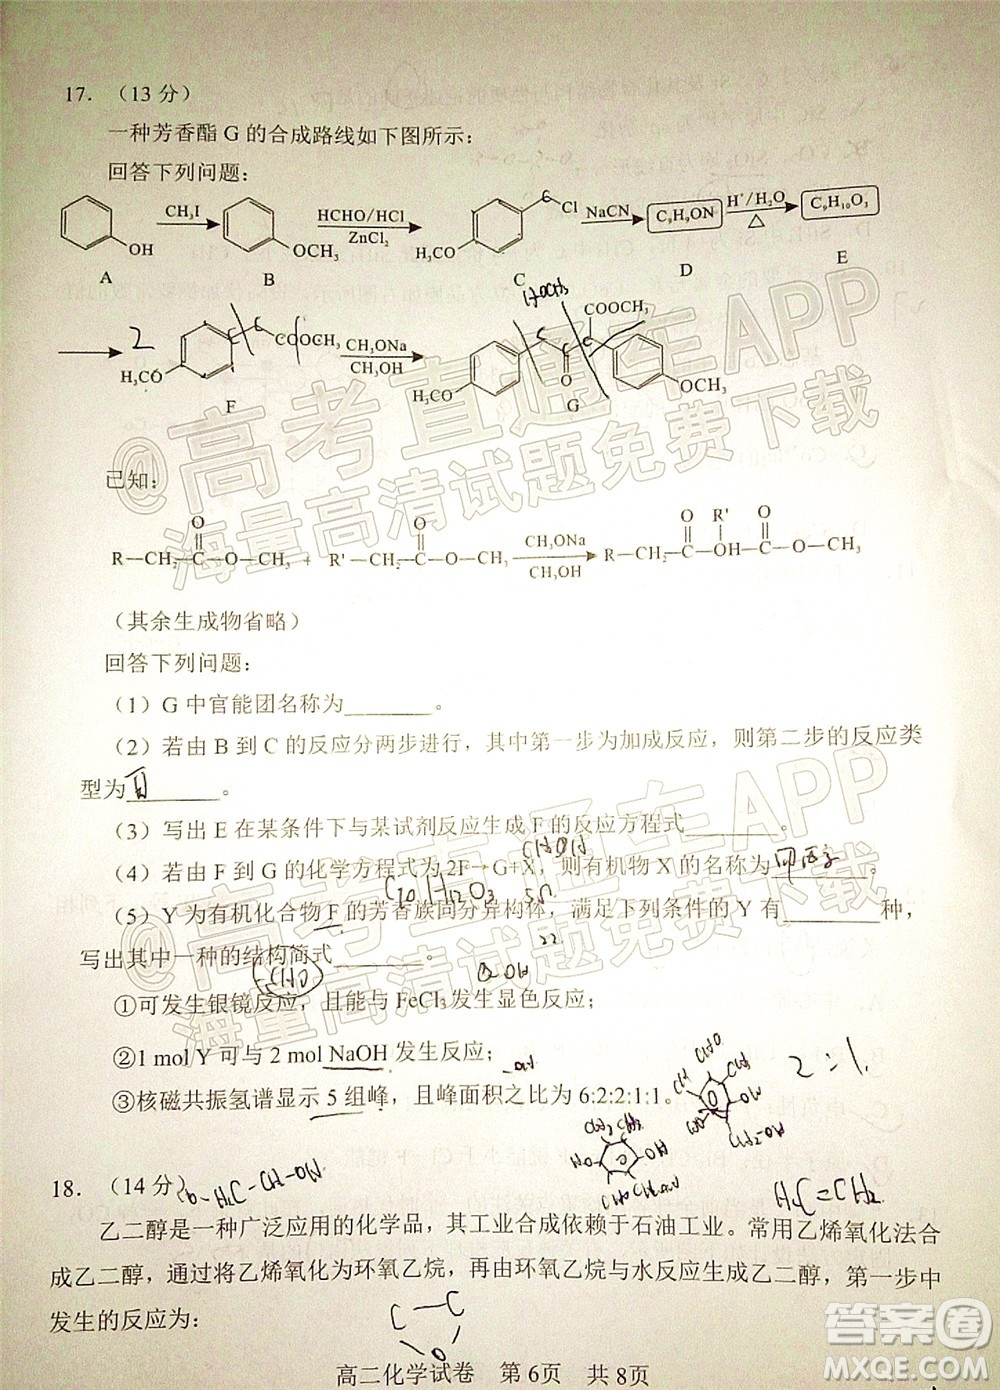 17. （13 分）
一种芳香酯 G 的合成路线如下图所示：
回答下列问题：
OH
A
CH₃I
OCH₃
B
HCHO/HCl
ZnCl₂
H₃CO
Cl
C
NaCN
C₉H₉ON
D
H⁺/H₂O
△
C₉H₁₀O₃
E
2
H₃CO
COOCH₃
F
CH₃ONa
CH₃OH
H₃CO
O
COOCH₃
OCH₃
G
@高考直通车APP
海量高清试题免费下载
已知：
R—CH₂—C—O—CH₃ + R'—CH₂—C—O—CH₃
O
O
CH₃ONa
CH₃OH
O R' O
R—CH₂—C—CH—C—O—CH₃
（其余生成物省略）
回答下列问题：
（1）G 中官能团名称为______。
（2）若由 B 到 C 的反应分两步进行，其中第一步为加成反应，则第二步的反应类
型为______。
（3）写出 E 在某条件下与某试剂反应生成 F 的反应方程式______。
（4）若 F 到 G 的化学方程式为 2F→G+X，则有机物 X 的名称为______。
C₁₀H₁₂O₃
（5）Y 为有机化合物 F 的芳香族同分异构体，满足下列条件的 Y 有______种，
写出其中一种的结构简式______。
CHO
22
①可发生银镜反应，且能与 FeCl₃ 发生显色反应；
②1 mol Y 可与 2 mol NaOH 发生反应；
2:1.
③核磁共振氢谱显示 5 组峰，且峰面积之比为 6:2:2:1:1。
@高考直通车APP
海量高清试题免费下载
18. （14 分）
H₂C=CH₂
乙二醇是一种广泛应用的化学品，其工业合成依赖于石油工业。常用乙烯氧化法合
成乙二醇，通过将乙烯氧化为环氧乙烷，再由环氧乙烷与水反应生成乙二醇，第一步中
发生的反应为：
C—C
O
高二化学试卷 第 6页 共 8页
答案圈
MXQE.COM